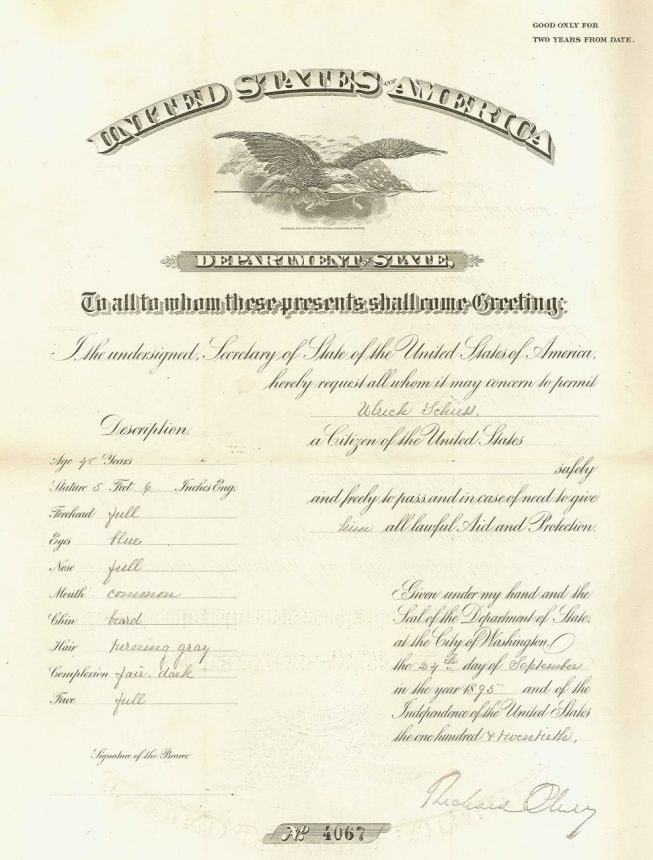 GOOD ONLY FOR
TWO YEARS FROM DATE.
UNITED STATES OF AMERICA
DEPARTMENT OF STATE,
To all to whom these presents shall come Greeting:
I, the undersigned, Secretary of State of the United States of America,
hereby request all whom it may concern to permit
Ulrich Schiess,
a Citizen of the United States
safely
and freely to pass and in case of need to give
him all lawful Aid and Protection.
Description.
Age Years
Stature 5 Feet 6 Inches Eng.
Forehead full
Eyes blue
Nose full
Mouth common
Chin beard
Hair turning gray
Complexion fair-dark
Face full
Signature of the Bearer.
Given under my hand and the
Seal of the Department of State,
at the City of Washington,
the 24th day of September
in the year 1895 and of the
Independence of the United States
the one hundred & twentieth.
Richard Olney
No 4067